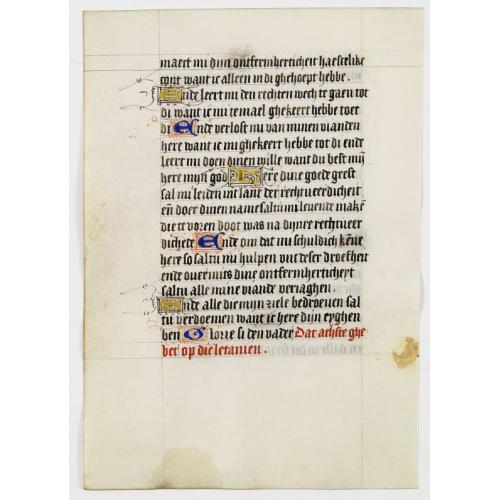 maect mi dijn ontfermherticheit haestelike
cont want ic alleen in di ghehoept hebbe.
Ende leert mi den rechten wech te gaen tot
di want ic mi temael ghekeert hebbe toet
di Ende verlost mi van minen vianden
here want ic mi ghekeert hebbe tot di ende
leert mi doen dinen wille want du best mijn
here mijn god Here dine goede geest
sal mi leiden int lant der rechtueerdicheit
en̄ doer dinen name saltu mi leuende makē
die te voren doot was na dijnre rechtueer
dichede Ende om dat mi schuldich kēne
here so saltu mi hulpen uut deser droefheit
ende ouermits dine ontfermherticheyt
saltu alle mine viande veriaghen.
Ende alle die mijn ziele bedroeuen sal
tu verdoemen want ic here dijn eyghen
ben Glorie si den vader Dat achste ghe
bet op die letanien.